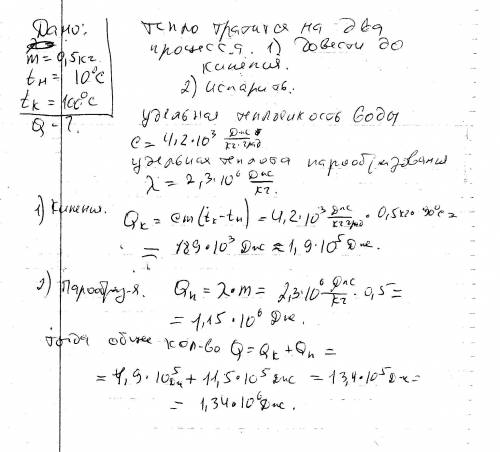 Дано:
m = 0,5 кг.
tн = 10°C
tк = 100°C
Q - ?
тепло тратится на два
процесса. 1) довести до
кипения.
2) испарить.
удельная теплоёкость воды
c = 4,2·10³ Дж/кг·град
удельная теплота парообразования
λ = 2,3·10⁶ Дж/кг.
1) Кипения. Qк = cm(tк-tн) = 4,2·10³ Дж/кг·град · 0,5кг · 90°C =
= 189·10³ Дж ≈ 1,9·10⁵ Дж.
2) Парообр-я. Qп = λ·m = 2,3·10⁶ Дж/кг · 0,5 =
= 1,15·10⁶ Дж.
тогда общее кол-во Q = Qк + Qп =
= 1,9·10⁵ Дж + 11,5·10⁵ Дж = 13,4·10⁵ Дж =
= 1,34·10⁶ Дж.